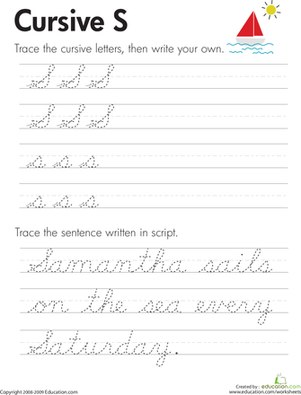 Cursive S
Trace the cursive letters, then write your own.
S S S
S S S
s s s
s s s
Trace the sentence written in script.
Samantha sails
on the sea every
Saturday.
Copyright 2008-2009 Education.com
Created by: education.com
www.education.com/worksheets